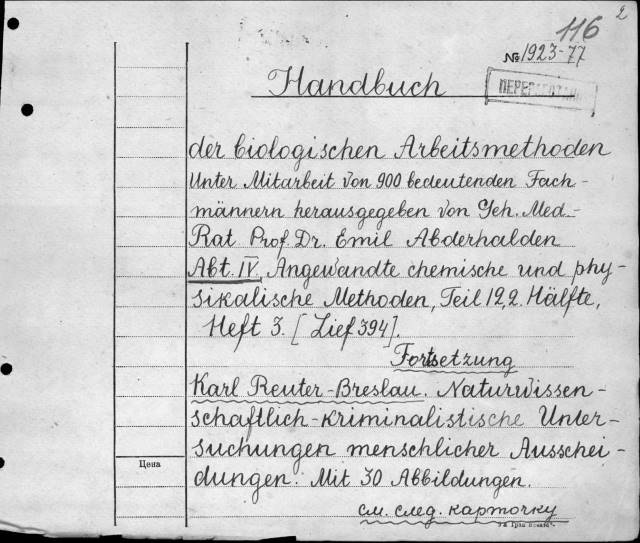 2
116
№ 1923-77
Handbuch
der biologischen Arbeitsmethoden
Unter Mitarbeit von 900 bedeutenden Fach-
männern herausgegeben von Geh. Med.-
Rat Prof. Dr. Emil Abderhalden
Abt. IV. Angewandte chemische und phy-
sikalische Methoden, Teil 12, 2. Hälfte,
Heft 3. [Lief 394].
Fortsetzung
Karl Reuter-Breslau. Naturwissen-
schaftlich-kriminalistische Unter-
suchungen menschlicher Ausschei-
dungen. Mit 30 Abbildungen.
Цена
см. след. карточку